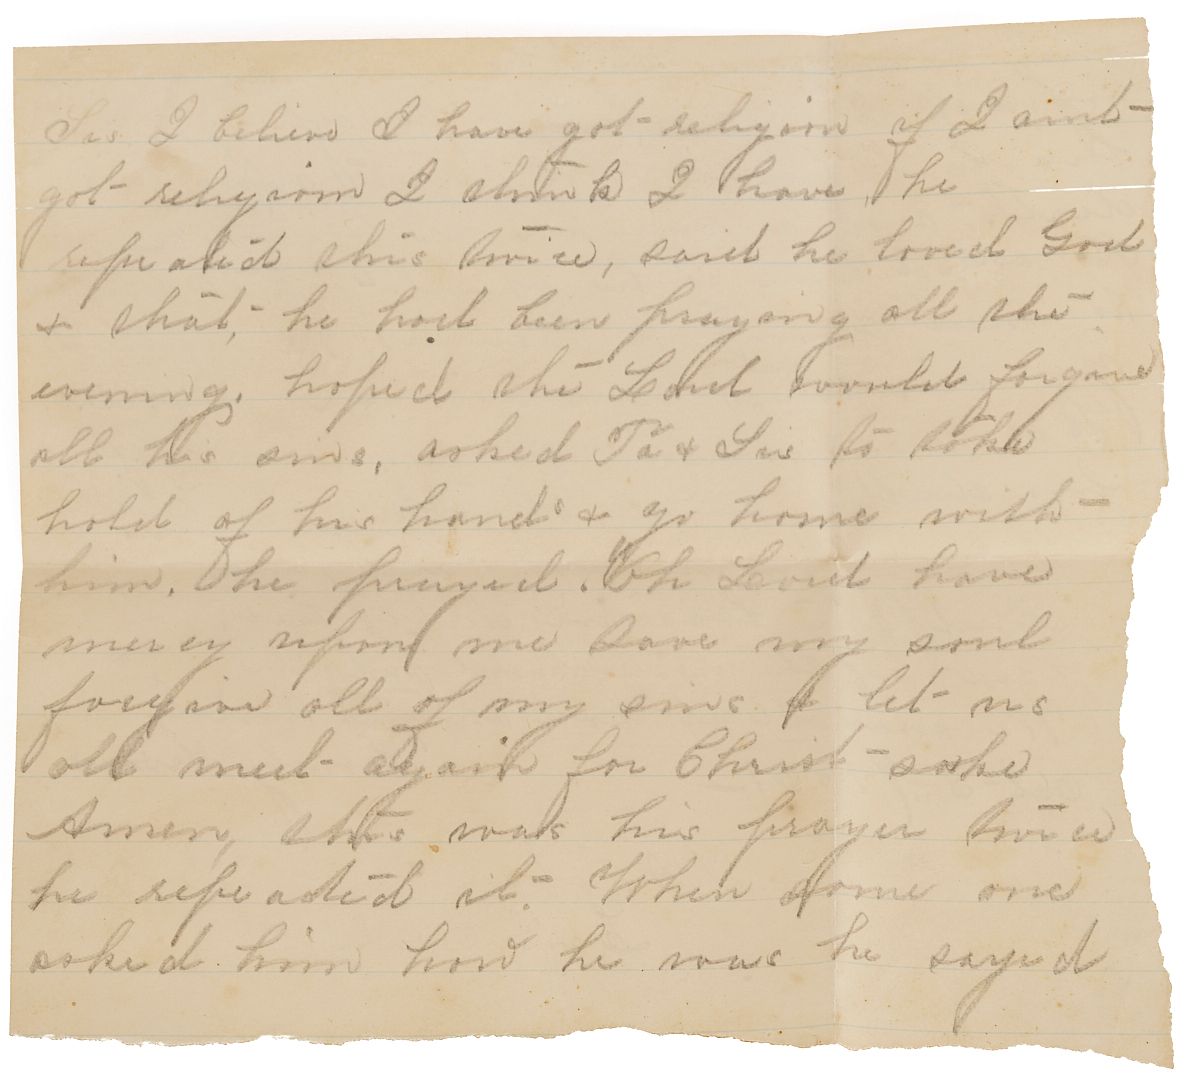 Sis I believe I have got religion if I aint
got religion I think I have, he
repeated this twice, said he loved God
& that, he had been praying all the
evening. hoped the Lord would forgive
all his sins, asked Pa & Sis to take
hold of his hands & go home with
him. he prayed. "Oh Lord have
mercy upon me save my soul
forgive all of my sins & let us
all meet again for Christ sake
Amen, this was his prayer twice
he repeated it. When some one
asked him how he was he sayed